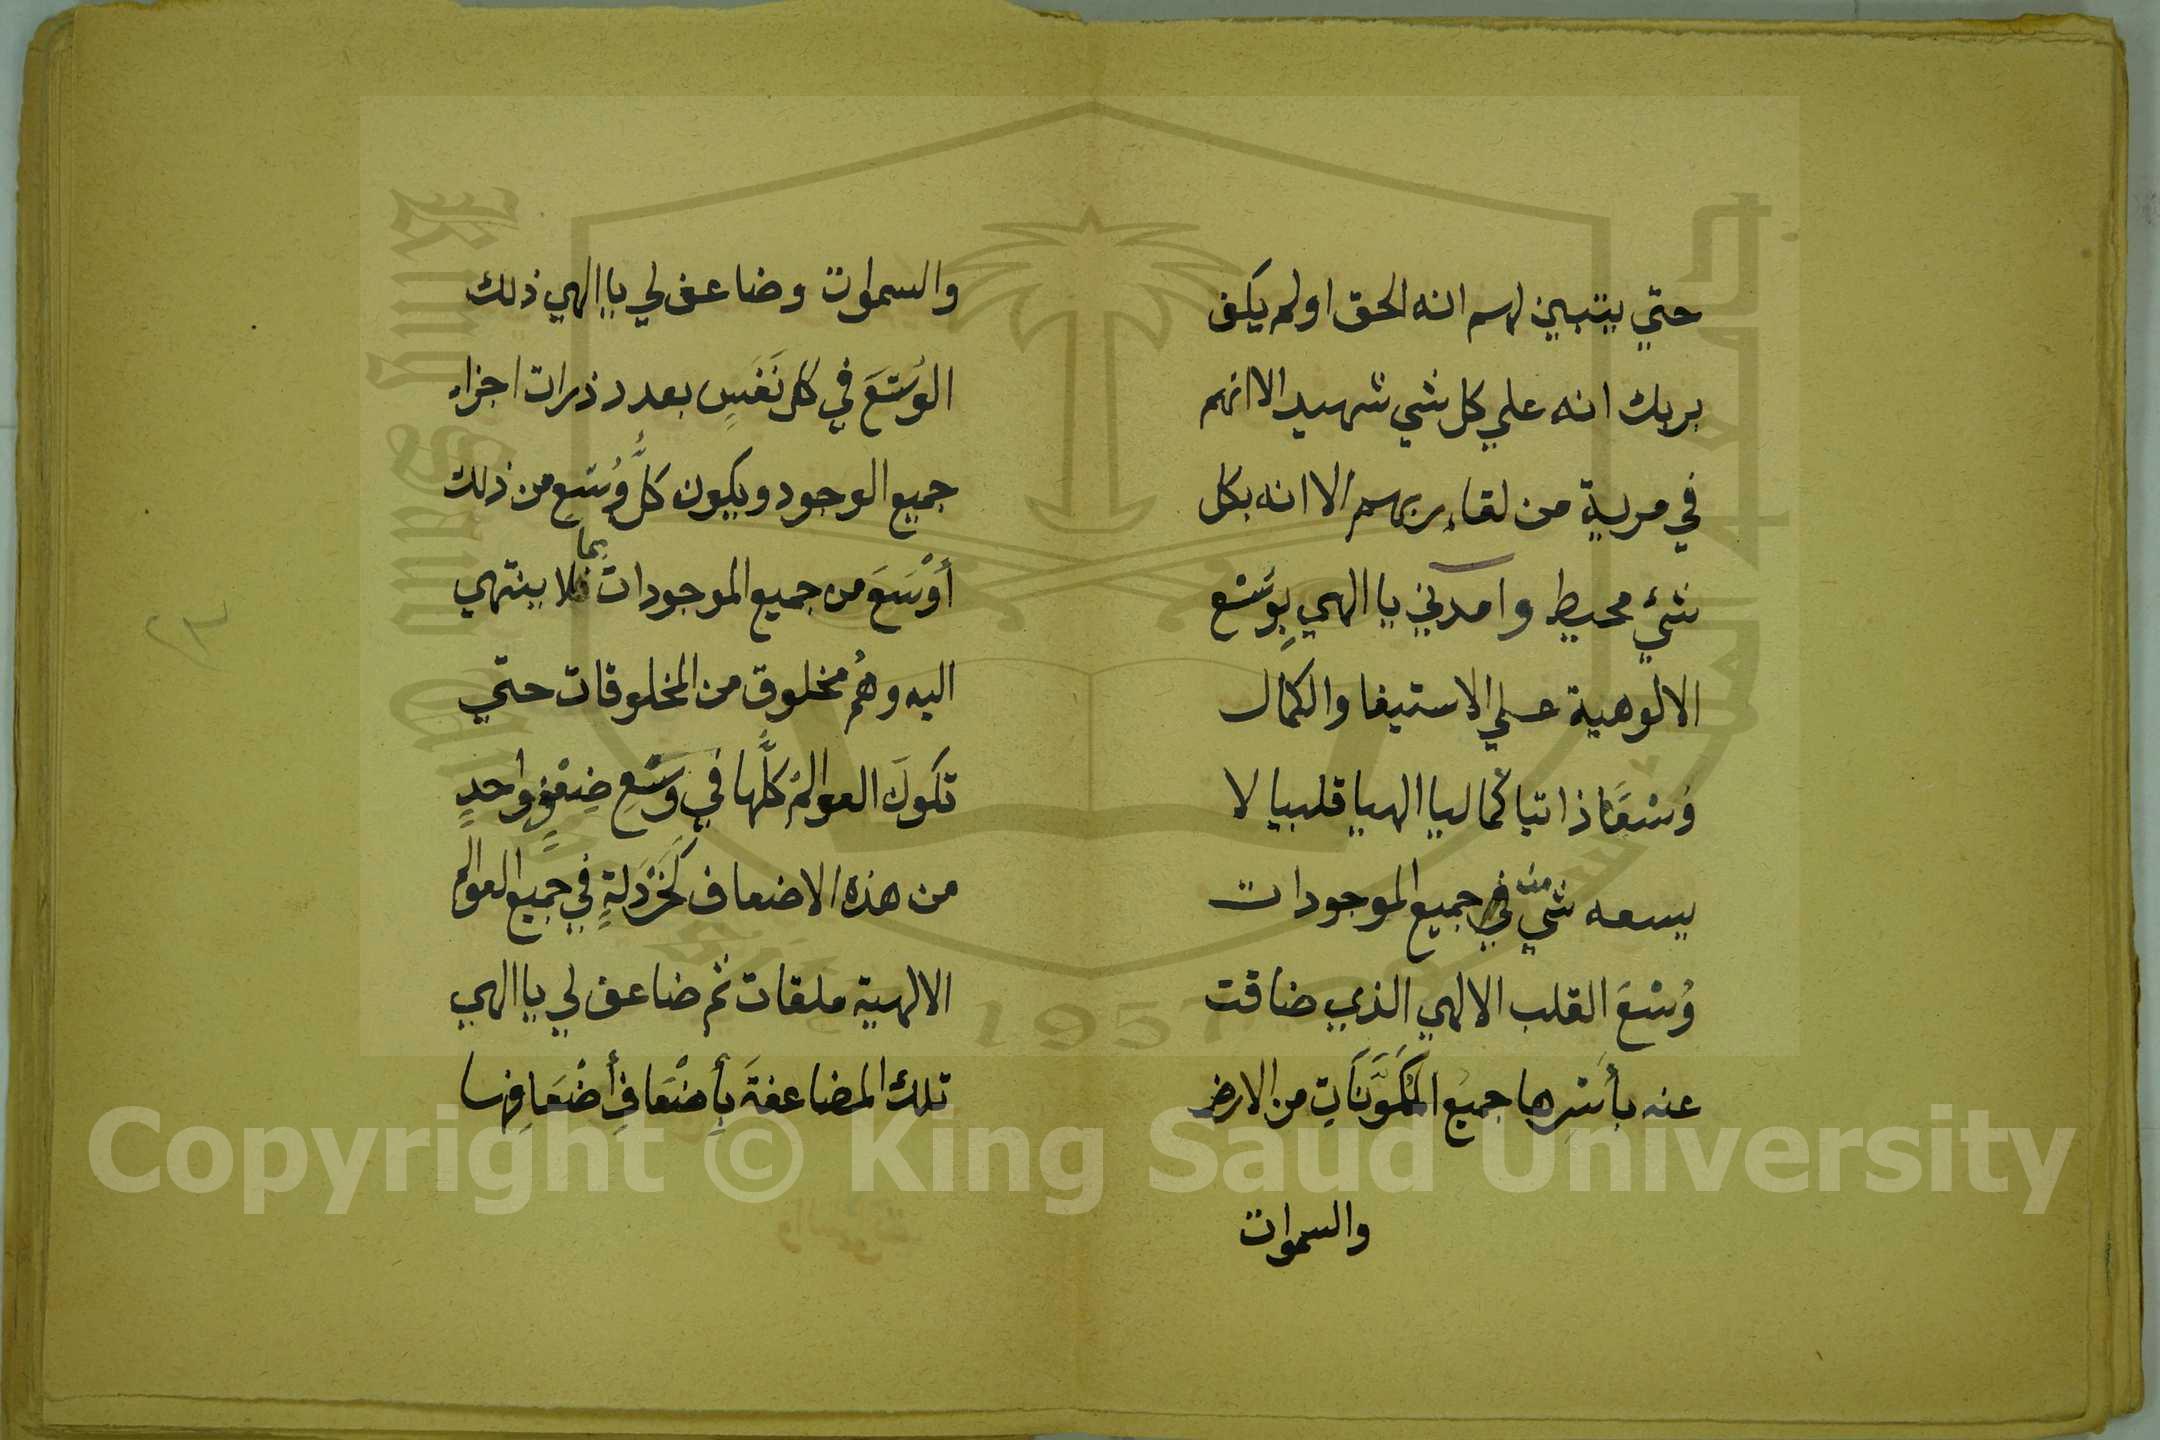 حتي يتبين لهم انه الحق اولم يكف
بربك انه علي كل شي شهيد الا انهم
في مرية من لقاء ربهم الا انه بكل
شيء محيط وامدني يا الهي بِوُسْع
الالوهية علي الاستيفا والكمال
وُسْعًا ذاتيا كماليا الهيا قلبيا لا
يسعه شيء من جميع الموجودات
وُسْعَ القلب الالهي الذي ضاقت
عنه بأسْرِها جميعُ المُكَوَّنَاتِ من الارض
والسموات
والسموات وضاعف لي يا الهي ذلك
الوُسْعَ في كل نَفَسٍ بعدد ذرات اجزاء
جميع الوجود ويكون كلُّ وُسْعٍ من ذلك
أوْسَعَ من جميع الموجودات بما لا ينتهي
اليه وهْمُ مخلوق من المخلوقات حتي
تكونَ العوالمُ كلُّها في وُسْعِ ضِعْفٍ واحدٍ
من هذه الاضعاف كَخَرْدَلةٍ في جميع العوالم
الالهية ملقات ثم ضاعف لي يا الهي
تلك المضاعفةَ بِأَضْعَافِ أَضْعَافِها
٢٣
King Saud University
1957
Copyright © King Saud University